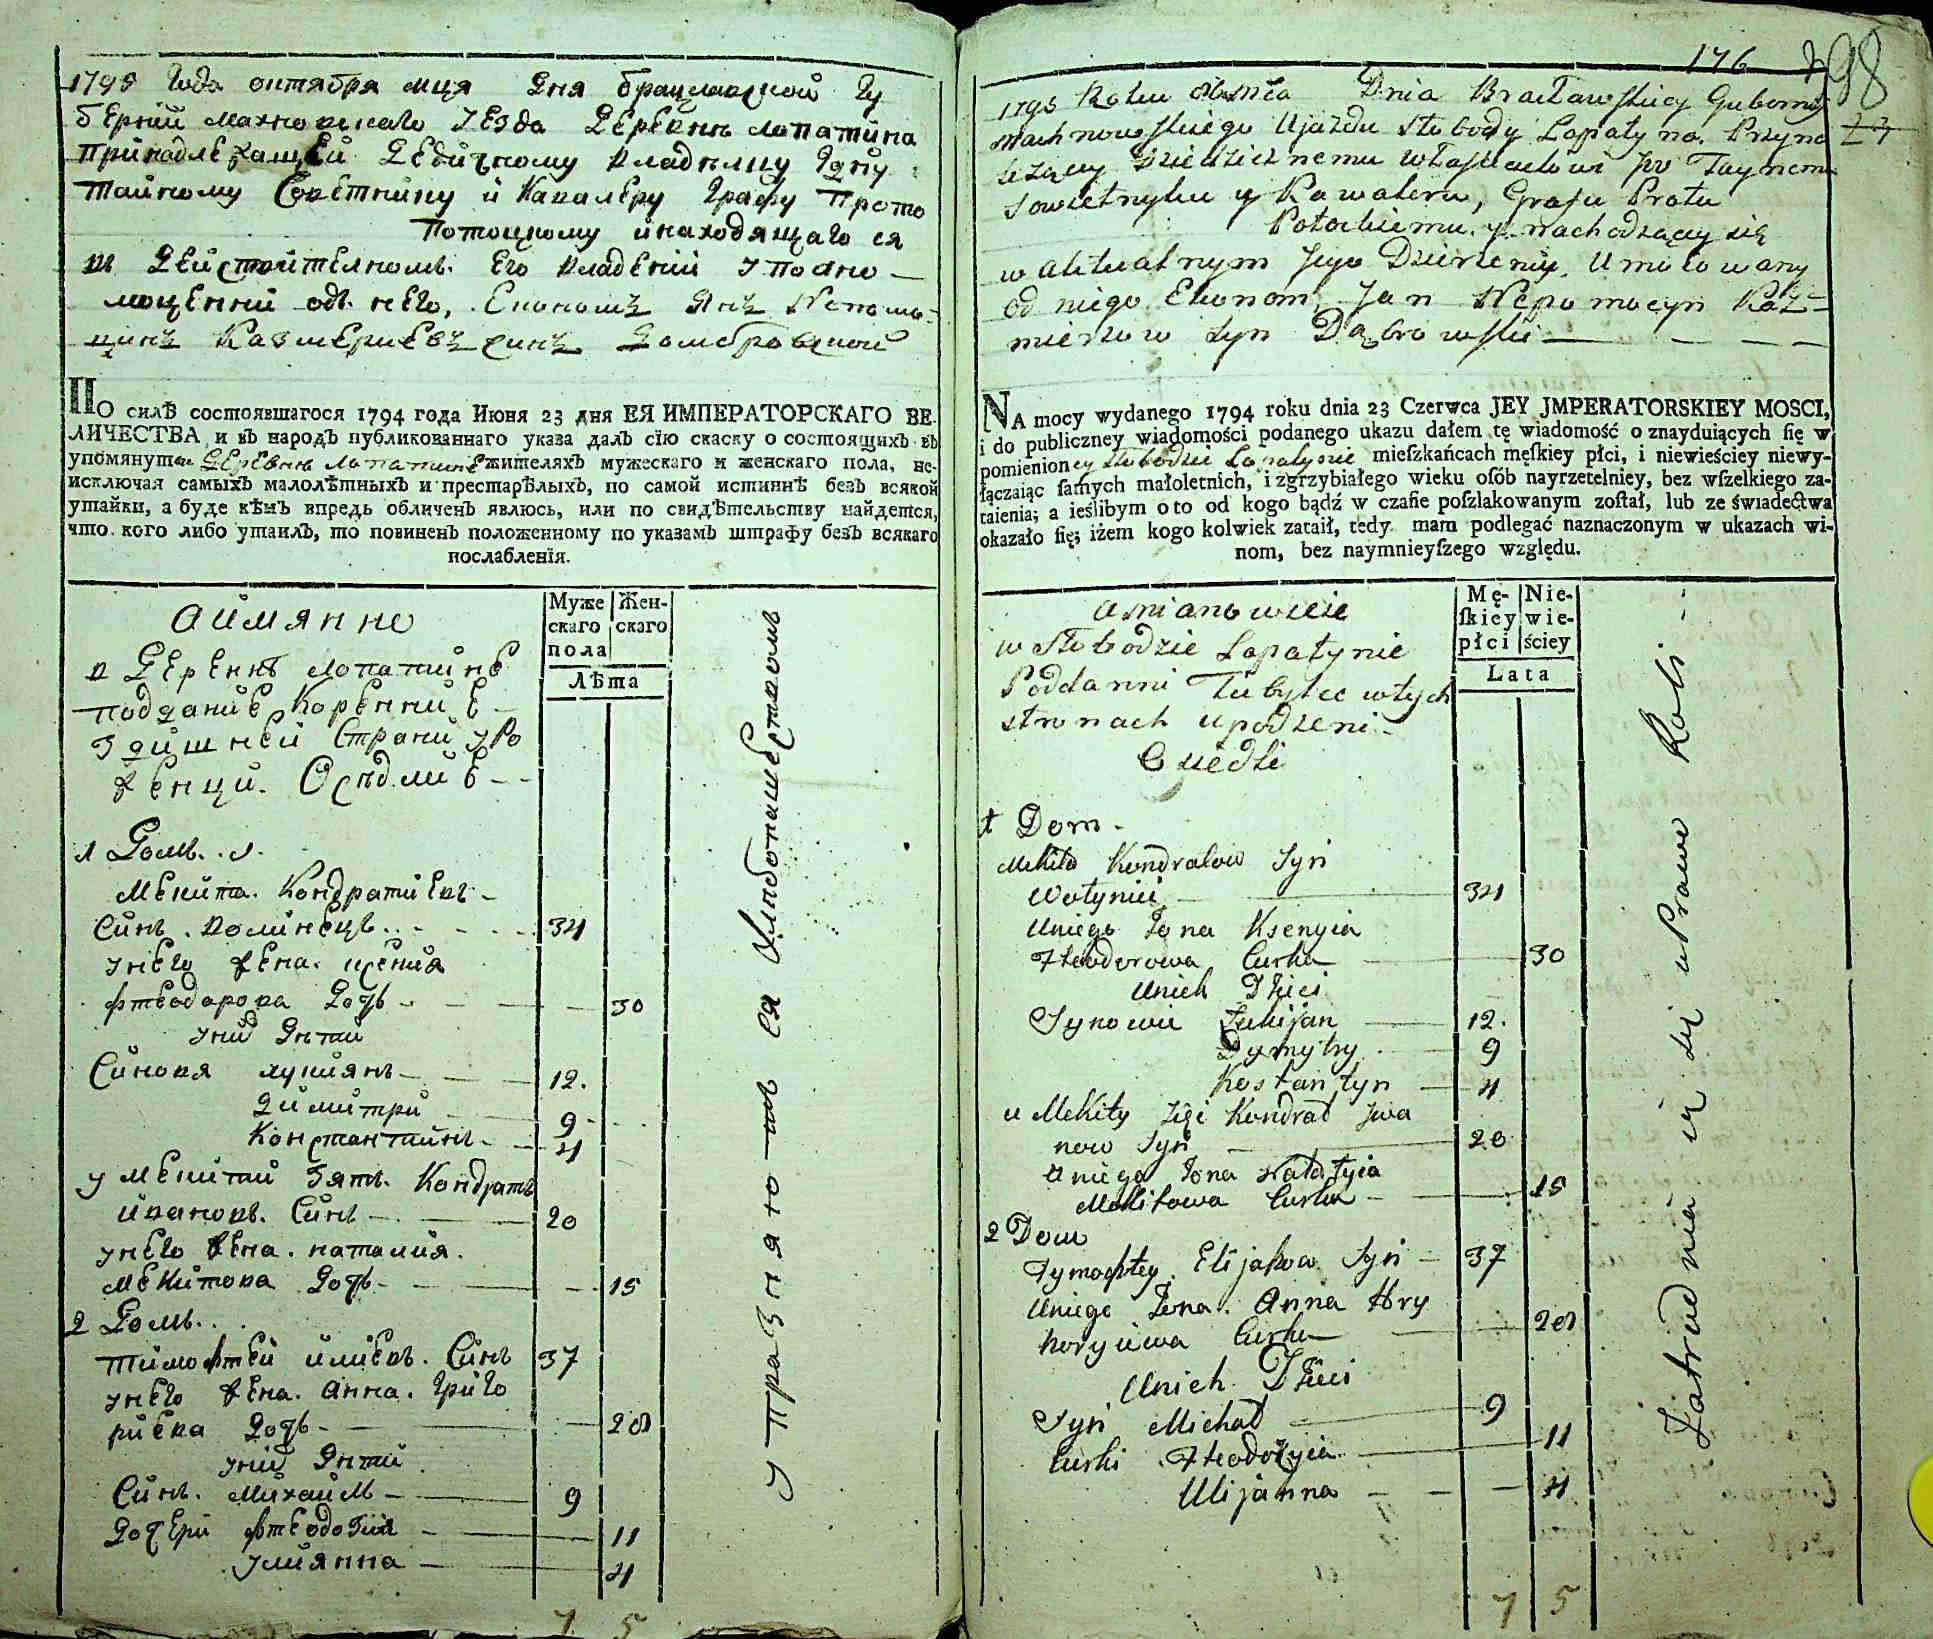 1795 Года октября мця Дня брацлавской Гу
бернии махновского Уезда Деревни лопатина
Принадлежащей Дедичному владелцу Гдну
тайному Советнику и Кавалеру Графу Прото
Потоцкому инаходящагося
въ Действителномъ Его владении Уполно-
моценний одъ него, Економъ Янъ Непомо-
цинъ Казмериевъ синъ Домбровской
ПО силѣ состоявшагося 1794 года Июня 23 дня ЕЯ ИМПЕРАТОРСКАГО ВЕ-
ЛИЧЕСТВА, и въ народъ публикованнаго указа далъ сїю скаску о состоящихъ въ
упомянутой Деревне Лопатине жителяхъ мужескаго и женскаго пола, не-
исключая самыхъ малолѣтныхъ и престарѣлыхъ, по самой истиннѣ безъ всякой
утайки, а буде кѣмъ впредь обличенъ явлюсь, или по свидѣтельству найдется,
что кого либо утаилъ, то повиненъ положенному по указамъ штрафу безъ всякаго
послабленїя.
Аимянно
в Деревнѣ лопатине
поддание Коренние
здишней Страни уро
женци. Оседлие
Муже
скаго
пола
Жен-
скаго
Лѣта
1 Домъ. 1.
Мекита. Кондратиевъ
Синъ. волинецъ 34
унего жена. ксения
фтеодорова Дочь 30
уних Дѣти
Синовя лукиянъ 12.
димитри 9
Константинъ 4
у мекити зять. Кондратъ
ивановъ. Синъ 20
унего жена. наталия.
мекитова Дочь 15
2 Домъ.
тимофтей илиевъ. Синъ 37
унего жена. анна. Григо
риева Дочь 28
уних Дѣти
Синъ. михаилъ 9
Дочери фтеодозия 11
улиянна 4
7 5
упразняютъ ся хлѣбопашествомъ
176
98
1795 Roku Dnia Bracławskiey Gubernij
Machnowskiego Ujazdu słobody Łopatyna. Przyna
leżącey Dziedzicznemu włascicielowi Taynemu
Sowietnyku y Kawaleru, Grafu Protu
Potockiemu. y. nachodzącey się
w aktualnym Jego Dzierzeniu. Umocowany
od niego Ekonom, Jan Nepomocyn Kaź-
mierzow syn Dąbrowski
NA mocy wydanego 1794 roku dnia 23 Czerwca JEY JMPERATORSKIEY MOSCI,
i do publiczney wiadomości podanego ukazu dałem tę wiadomość o znayduiących ſię w
pomienioney słobodzie Łopatynie mieſzkańcach męſkiey płci, i niewieſciey niewy-
łączaiąc ſamych małoletnich, i zgrzybiałego wieku oſób nayrzetelniey, bez wſzelkiego za-
taienia; a ieślibym oto od kogo bądź w czaſie poſzlakowanym zoſtał, lub ze świadectwa
okazało ſię; iżem kogo kolwiek zataił, tedy mam podlegać naznaczonym w ukazach wi-
nom, bez naymnieyſzego względu.
a mianowicie
w słobodzie Łopatynie
Poddanni Tubylce wtych
stronach urodzeni
Osiedli
Mę-
ſkiey
płci
Nie-
wie-
ściey
Lata
1 Dom.
Mekita Kondratow Syn
Wołyniec 34
Uniego Żona Ksenyia
Fteodorowa Curka 30
Unich Dzieci
Synowie Łukijan 12.
Dymytry 9
Kostantyn 4
u Mekity Zięć Kondrat Iwa
now Syn 20
Uniego Żona Natalyia
Mekitowa Curka 15
2 Dom
Tymoftey Elijakow Syn 37
Uniego Żona. Anna Hry
horyiewa Curka 28
Unich Dzieci
Syn Michał 9
Curki Fteodozyia 11
Ulijanna 4
7 5
Zatrudniaią się uPrawą Roli